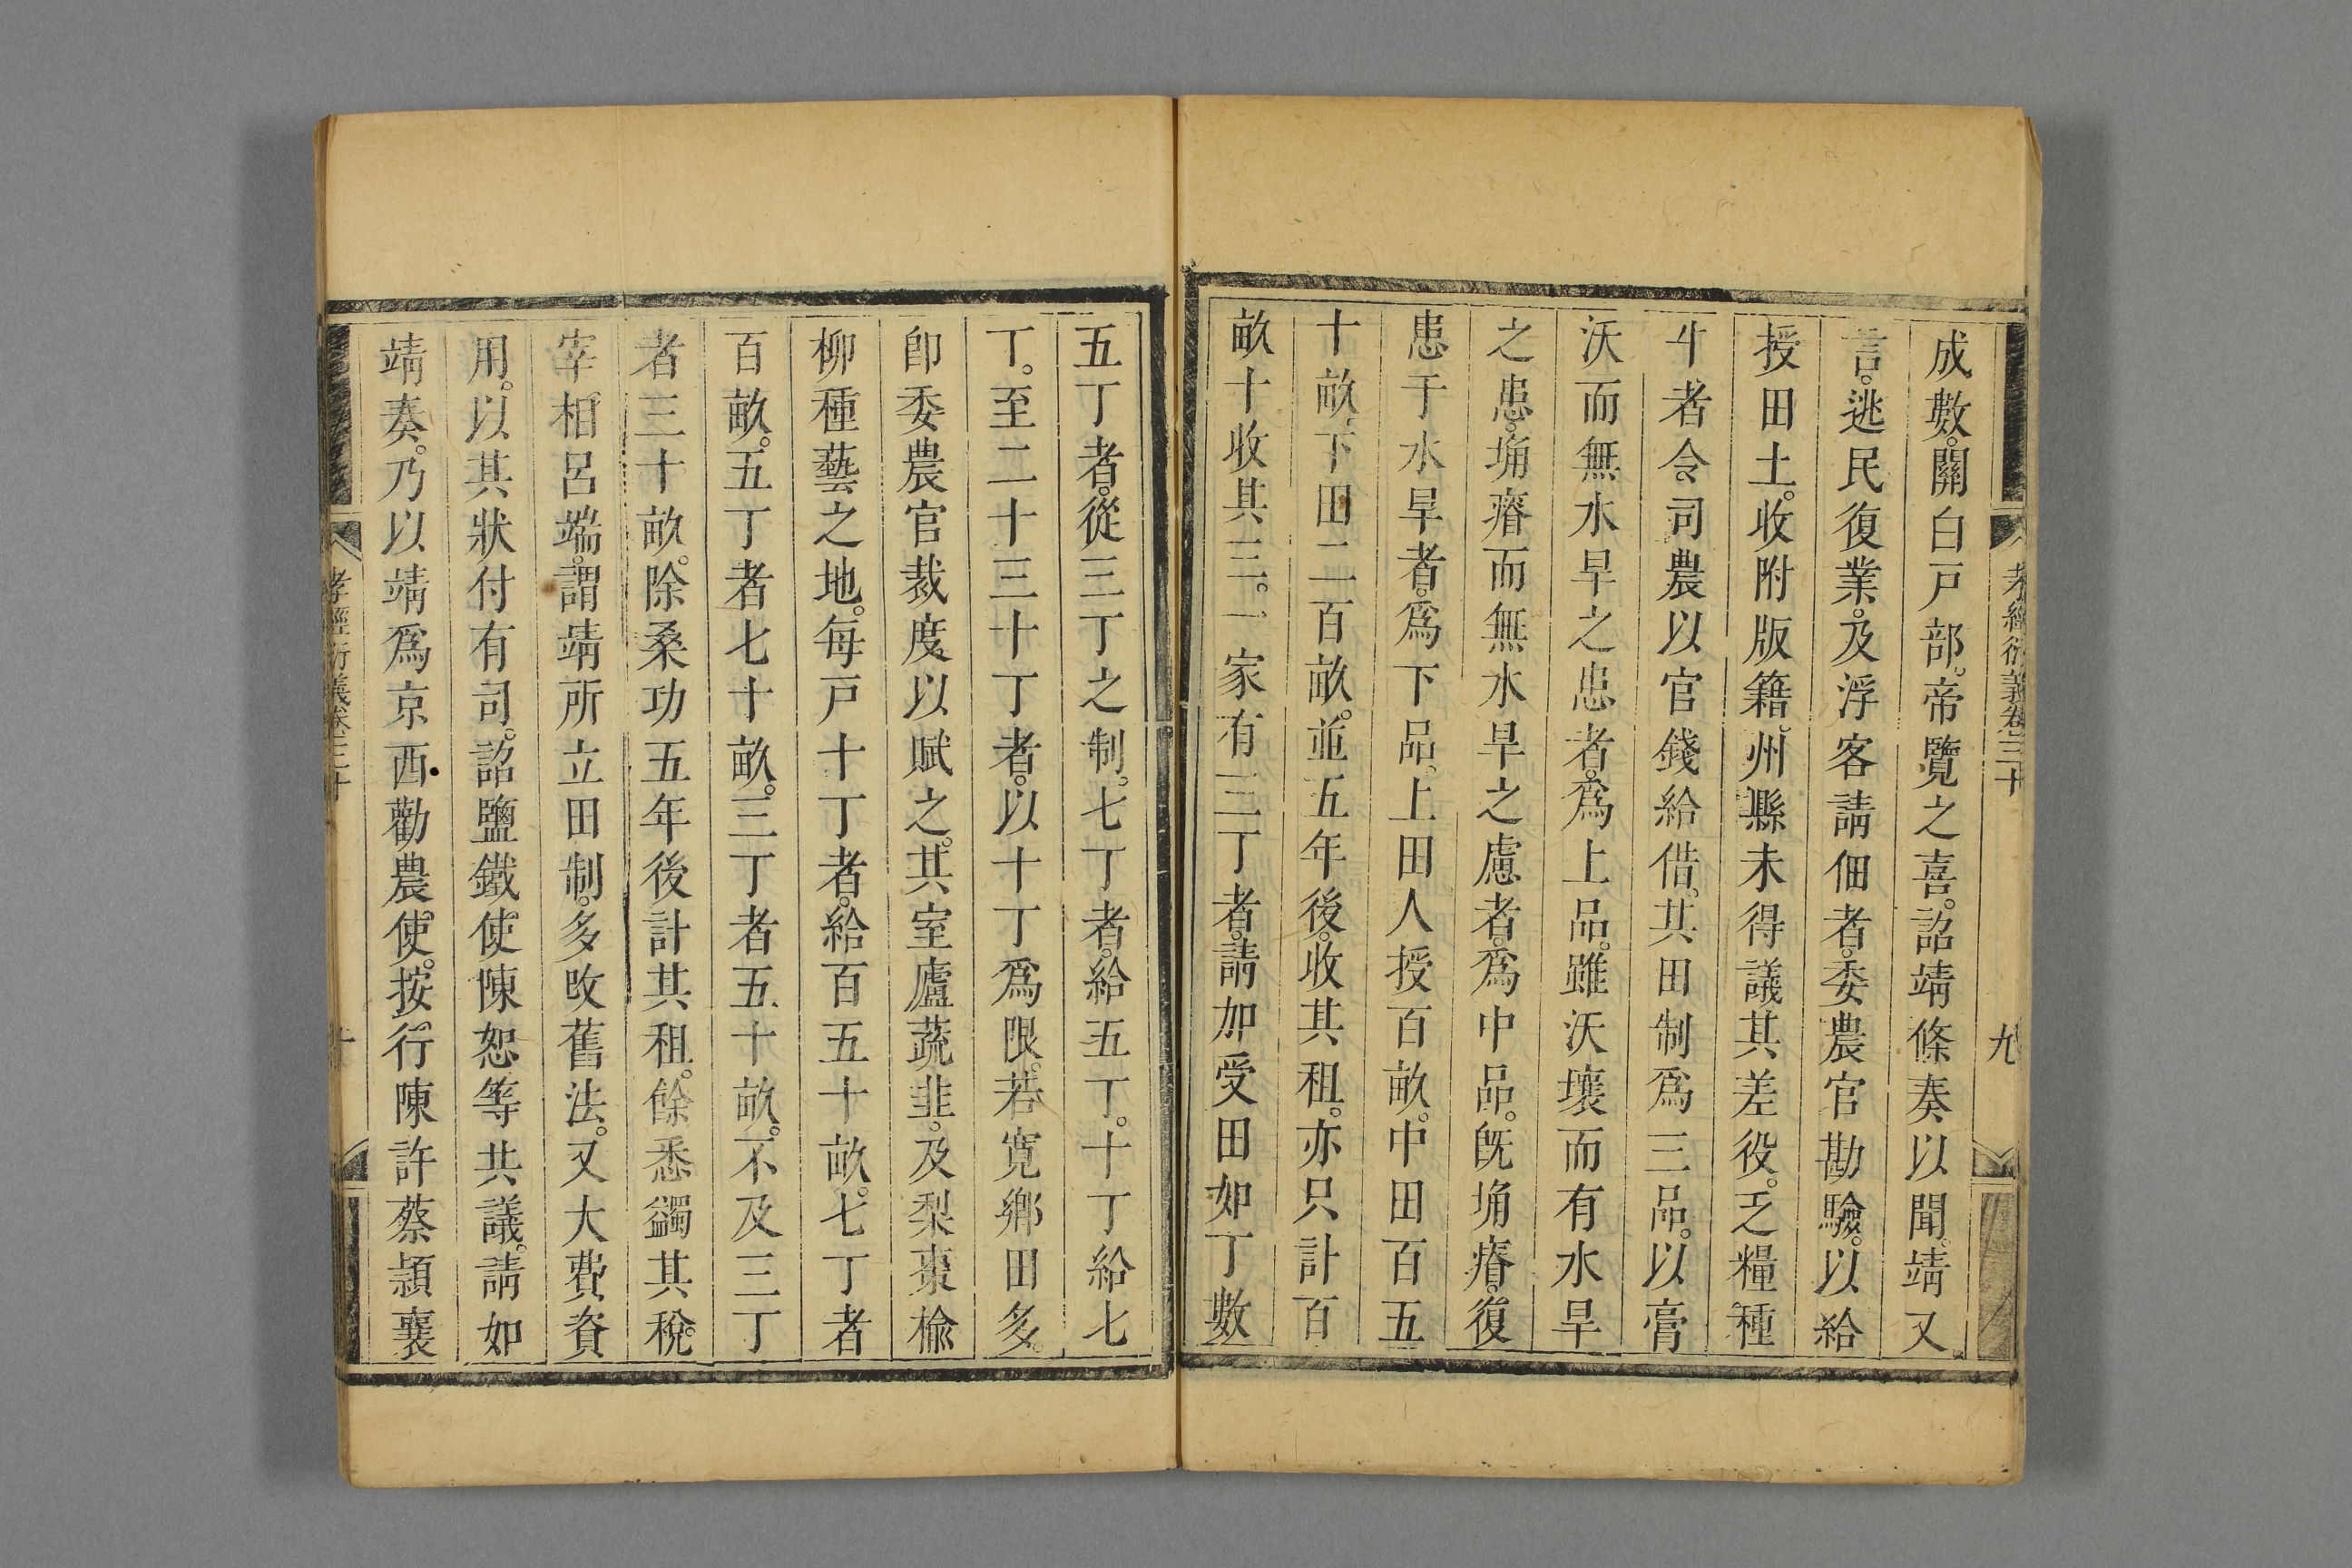 孝經衍義卷三十
九
成數。關白戸部。帝覽之喜。詔靖條奏以聞。靖又
言。逃民復業。及浮客請佃者。委農官勘驗。以給
授田土。收附版籍。州縣未得議其差役。乏糧種
牛者。令司農以官錢給借。其田制爲三品。以膏
沃而無水旱之患者。爲上品。雖沃壤而有水旱
之患。埆瘠而無水旱之慮者。爲中品。旣埆瘠。復
患于水旱者。爲下品。上田人授百畝。中田百五
十畝。下田二百畝。並五年後。收其租。亦只計百
畝十收其三。一家有三丁者。請加受田如丁數
五丁者。從三丁之制。七丁者。給五丁。十丁給七
丁。至二十三十丁者。以十丁爲限。若寛鄉田多。
卽委農官裁度以賦之。其室廬蔬韭。及梨棗楡
柳種藝之地。每戸十丁者。給百五十畝。七丁者
百畝。五丁者七十畝。三丁者五十畝。不及三丁
者三十畝。除桑功五年後計其租。餘悉蠲其稅。
宰相呂端。謂靖所立田制。多改舊法。又大費資
用。以其狀付有司。詔鹽鐵使陳恕等共議。請如
靖奏。乃以靖爲京西勸農使。按行陳許蔡潁襄
孝經衍義卷三十
十